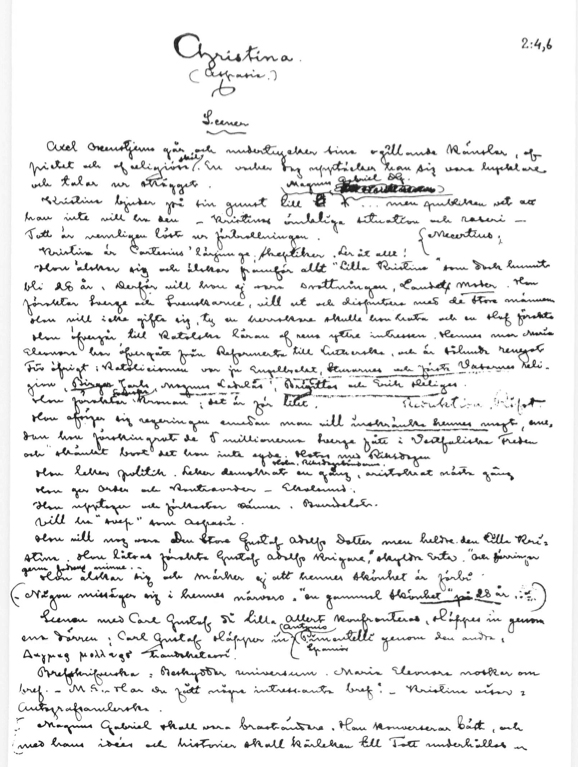 2:4,6
Christina.
(Aspasia.)
Scener
Axel Oxenstjerna går och undertrycker sina ogillande känslor, af
pietet och af religiösa skäl. En vacker dag upptäcker han sig vara lycklare
och talar ur skägget. Magnus Gabriel Dlg.
Kristina bjuder på sin gunst till ... men publiken vet att
hon inte vill ha den – Kristinas ömkliga situation och raseri –
Tott är nemligen löst ur förtrollningen.
Kristina är Cartesius' lärjunge, skeptiker. Ler åt allt!
Hon älskar sig och älskar framför allt "Lilla Kristina" som dock hunnit
bli 28 år. Derför vill hon ej vara drottningen, Landets moder. Hon
föraktar Sverge och Svenskarne, vill ut och disputera med de stora männen
Hon vill icke gifta sig, ty en herrskare skulle hon hata och en slaf förakta
Hon öfvergår till Katolska läran af rent yttre intressen. Hennes mor Maria
Eleonora har öfvergått från Reformerta till Lutherska, och är sålunda renegat
För öfrigt: Katolicismen var ju Engelbrekts, Sturarnes och första Vasarnes reli-
gion, Birger Jarls, Magnus Ladulås', Birgittas och Erik Heliges.
Hon föraktar Kronan; det är för litet.
Hon afsäger sig regeringen emedan man vill inskränka hennes magt, sen
dan hon förskingrat de 5 millionerna Sverge fått i Vestfaliska Freden
och skänkt bort det hon inte egde. Hotas med Riksdagen
Hon leker politik. Leker demokrat en gång, aristokrat nästa gång
Hon ger Order och Kontraorder –
Hon upptager och förkastar vänner.
Vill ha "svep" som Aspasia.
Hon vill nog vara Den Store Gustaf Adolfs Dotter men heldre den lilla Kri-
stina. Hon låtsas förakta Gustaf Adolfs krigare,
Hon älskar sig och märker ej att hennes skönhet är förbi.
(Någon missäger sig i hennes närvaro, "en gammal skönhet" på 28 år ...)
Scenen med Carl Gustaf då lilla Allert konfronteras, släppes in genom
ena dörren; Carl Gustaf släpper in Antonio Pimentelli genom den andra,
Spanior
Brefskrifverska: Beskyddar universum. Maria Eleonora nosar om
bref. – M. E. – Har du fått några intressanta bref? – Kristina visar:
Autografsamlerska.
Magnus Gabriel skall vara braständare. Han konverserar bäst, och
med hans idéer och historier skall kärleken till Tott underhållas